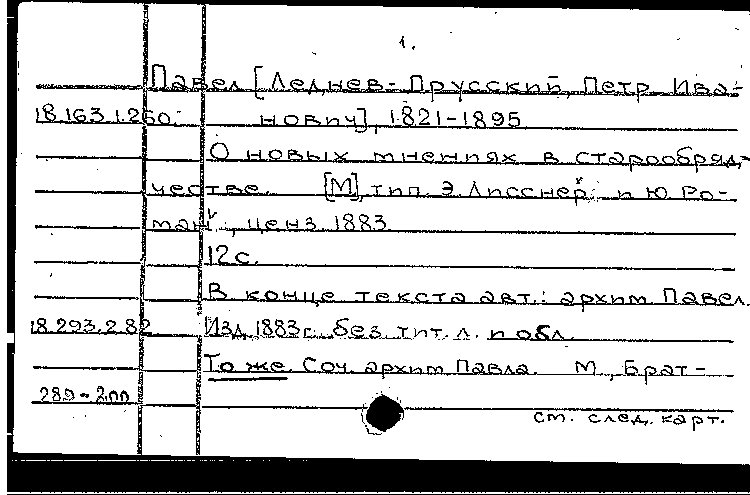 1.
Павел [Леднев-Прусский, Петр Ива-
18.163.1.260. нович], 1821-1895
О новых мнениях в старообряд-
честве. [М], тип. Э. Лисснер и Ю. Ро-
ман, ценз. 1883
12 с.
В конце текста авт.: архим. Павел.
18.293.2.82 Изд. 1883 г. без тит. л. и обл.
То же. Соч. архим. Павла. М., Брат-
289-200
см. след. карт.